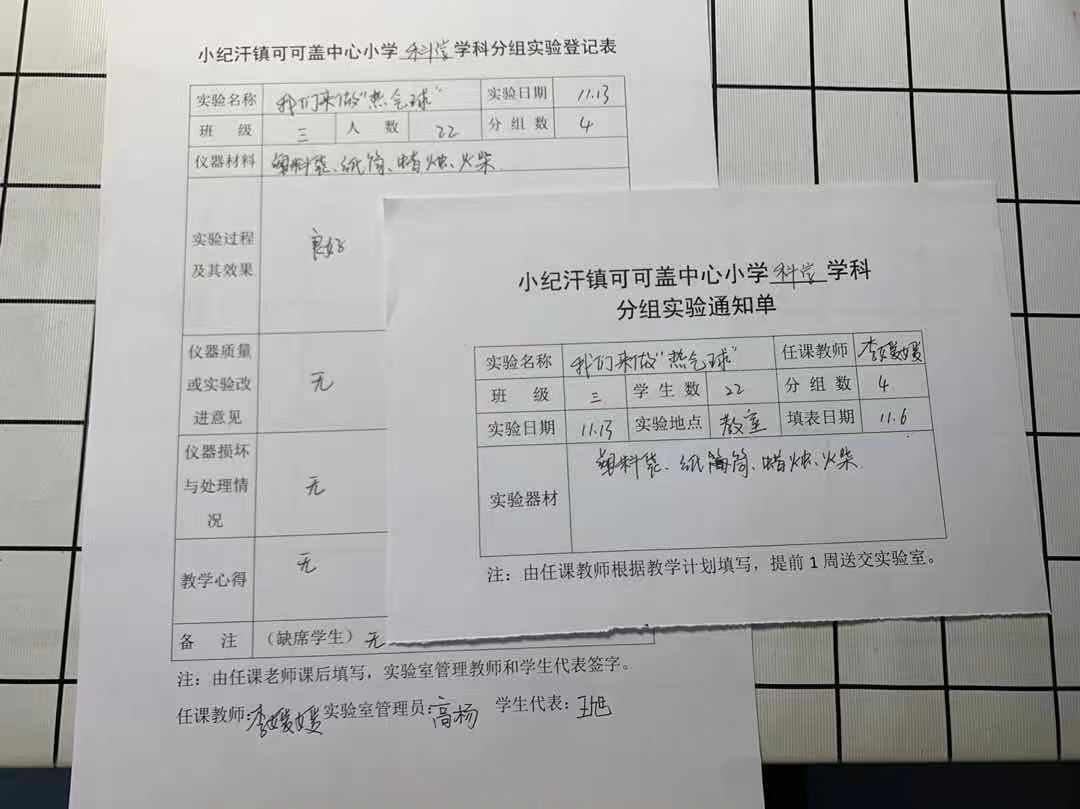 小纪汗镇可可盖中心小学科学学科分组实验登记表
实验名称 我们来做"热气球" 实验日期 11.13
班 级 三 人 数 22 分组数 4
仪器材料 塑料袋、纸筒、蜡烛、火柴
实验过程
及其效果
良好
仪器质量
或实验改
进意见
无
仪器损坏
与处理情
况
无
教学心得
无
备 注 (缺席学生) 无
注:由任课老师课后填写,实验室管理教师和学生代表签字。
任课教师:李媛媛 实验室管理员:高杨 学生代表:王旭
小纪汗镇可可盖中心小学科学学科
分组实验通知单
实验名称 我们来做"热气球" 任课教师 李媛媛
班 级 三 学生数 22 分组数 4
实验日期 11.13 实验地点 教室 填表日期 11.6
实验器材 塑料袋、纸筒、蜡烛、火柴
注:由任课教师根据教学计划填写,提前1周送交实验室。